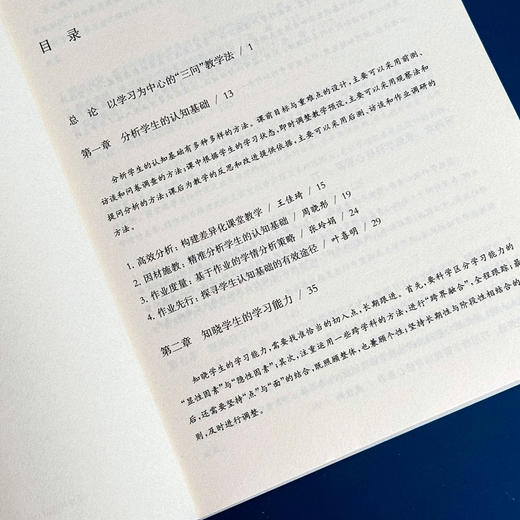 目 录
总 论 以学习为中心的“三问”教学法 / 1
第一章 分析学生的认知基础 / 13
分析学生的认知基础有多种多样的方法。课前目标与重难点的设计,主要可以采用前测、
访谈和问卷调查的方法;课中根据学生的学习状态,即时调整教学预设,主要可以采用观察法和
提问分析的方法;课后为教学的反思和改进提供依据,主要可以采用后测、访谈和作业调研的
方法。
1. 高效分析:构建差异化课堂教学 / 王佳琦 / 15
2. 因材施教:精准分析学生的认知基础 / 周晓彤 / 19
3. 作业度量:基于作业的学情分析策略 / 张玲娟 / 24
4. 作业先行:探寻学生认知基础的有效途径 / 叶喜明 / 29
第二章 知晓学生的学习能力 / 35
知晓学生的学习能力,需要找准恰当的切入点,长期跟进。首先,要科学区分学习能力的
“显性因素”与“隐性因素”;其次,注重运用一些跨学科的方法,进行“跨界融合”,全程跟踪;最
后,还需要坚持“点”与“面”的结合,既照顾整体,也兼顾个性;坚持长期性与阶段性相结合的
则,及时进行调整。